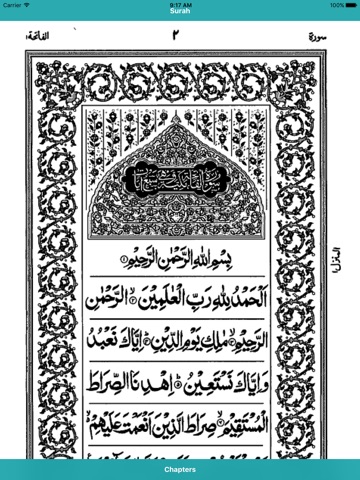 Carrier 9:17 AM 100%
Surah
الفاتحة ٢ سورة
المنزل
بِسْمِ اللهِ الرَّحْمٰنِ الرَّحِيْمِ
اَلْحَمْدُ لِلّٰهِ رَبِّ الْعٰلَمِيْنَ الرَّحْمٰنِ
الرَّحِيْمِ مٰلِكِ يَوْمِ الدِّيْنِ اِيَّاكَ نَعْبُدُ
وَاِيَّاكَ نَسْتَعِيْنُ اِهْدِنَا الصِّرَاطَ
الْمُسْتَقِيْمَ صِرَاطَ الَّذِيْنَ اَنْعَمْتَ عَلَيْهِمْ
Chapters